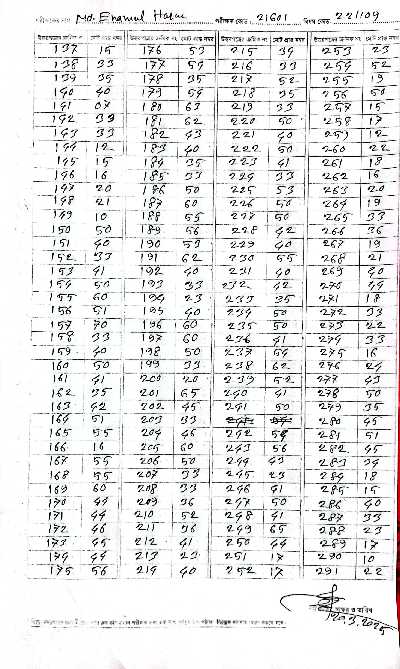 পরীক্ষকের নাম Md. Enamul Haque পরীক্ষক কোড : 21601 বিষয় কোড : 221/09
উত্তরপত্রের ক্রমিক নং মোট প্রাপ্ত নম্বর উত্তরপত্রের ক্রমিক নং মোট প্রাপ্ত নম্বর উত্তরপত্রের ক্রমিক নং মোট প্রাপ্ত নম্বর উত্তরপত্রের ক্রমিক নং মোট প্রাপ্ত নম্বর
137 15 176 53 215 34 253 23
138 33 177 54 216 33 254 52
139 35 178 35 217 52 255 13
140 40 179 54 218 35 256 50
141 07 180 63 219 33 257 15
142 33 181 62 220 50 258 17
143 33 182 43 221 40 259 12
144 12 183 40 222 50 260 22
145 15 184 35 223 41 261 18
146 16 185 33 224 33 262 16
147 20 186 50 225 53 263 20
148 21 187 60 226 50 264 19
149 10 188 55 227 50 265 33
150 50 189 56 228 42 266 36
151 40 190 53 229 40 267 19
152 33 191 62 230 55 268 21
153 41 192 40 231 40 269 40
154 50 193 33 232 42 270 44
155 60 194 23 233 35 271 18
156 51 195 40 234 50 272 33
157 70 196 60 235 50 273 22
158 33 197 60 236 41 274 33
159 40 198 50 237 54 275 16
160 50 199 33 238 62 276 24
161 41 200 20 239 52 277 43
162 35 201 65 240 41 278 50
163 42 202 45 241 50 279 35
164 51 203 33 280 45
165 55 204 46 242 54 281 51
166 16 205 60 243 56 282 45
167 55 206 50 244 43 283 34
168 55 207 33 245 23 284 18
169 60 208 33 246 41 285 15
170 44 209 36 247 50 286 40
171 44 210 52 248 41 287 33
172 46 211 36 249 65 288 23
173 45 212 41 250 44 289 17
174 44 213 23 251 17 290 10
175 56 214 40 252 17 291 22
স্বাক্ষর ও তারিখ
20.3.2025